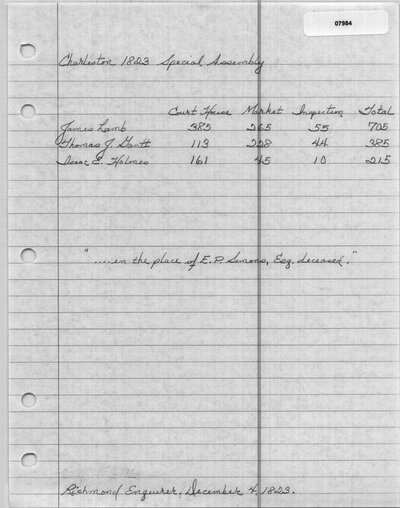 07984
Charleston 1823 Special Assembly
Court House Market Inspection Total
James Lamb 385 265 55 705
Thomas J. Gantt 113 228 44 385
Isaac E. Holmes 161 45 10 215
" .... in the place of E.P. Simons, Esq. deceased."
Richmond Enquirer, December 4, 1823.